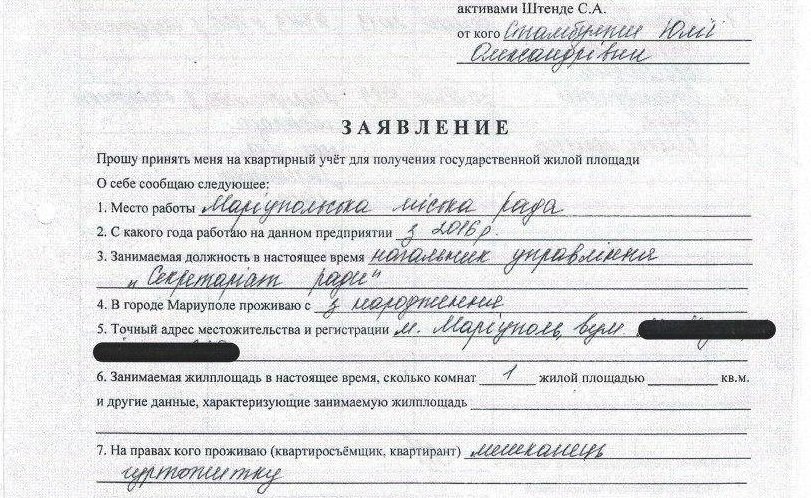 активами Штенде С.А.
от кого Стамбурській Юлії
Олександрівни
ЗАЯВЛЕНИЕ
Прошу принять меня на квартирный учёт для получения государственной жилой площади
О себе сообщаю следующее:
1. Место работы Маріупольська міська рада
2. С какого года работаю на данном предприятии з 2016 р.
3. Занимаемая должность в настоящее время начальник управління
„Секретаріат ради"
4. В городе Мариуполе проживаю с з народження
5. Точный адрес местожительства и регистрации м. Маріуполь, вул
6. Занимаемая жилплощадь в настоящее время, сколько комнат 1 жилой площадью кв.м.
и другие данные, характеризующие занимаемую жилплощадь
7. На правах кого проживаю (квартиросъёмщик, квартирант) мешканець
гуртожитку